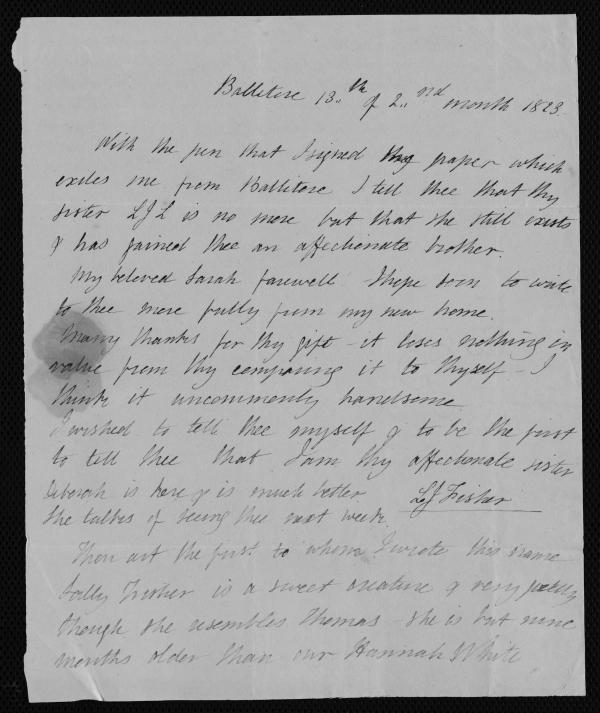 Ballitore 13..th of 2..nd month 1823.
With the pen that I signed the paper which
exiles me from Ballitore I tell thee that thy
sister LJL is no more but that she still exists
& has gained thee an affectionate brother.
My beloved Sarah farewell I hope soon to write
to thee more fully from my new home.
Many thanks for thy gift - it loses nothing in
value from thy comparing it to thyself - I
think it uncommonly handsome
I wished to tell thee myself & to be the first
to tell thee that I am thy affectionate sister
Deborah is here & is much better LJ Fisher
She talks of seeing thee next week.
Thou art the first to whom I wrote this name
Sally Fisher is a sweet creature & very pretty
though she resembles Thomas - she is but nine
months older than our Hannah White